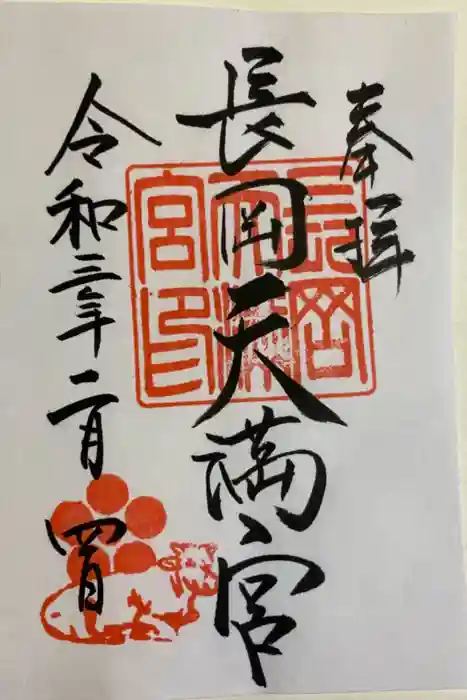 奉拝
長岡天満宮
長岡天満宮印
令和三年二月四日